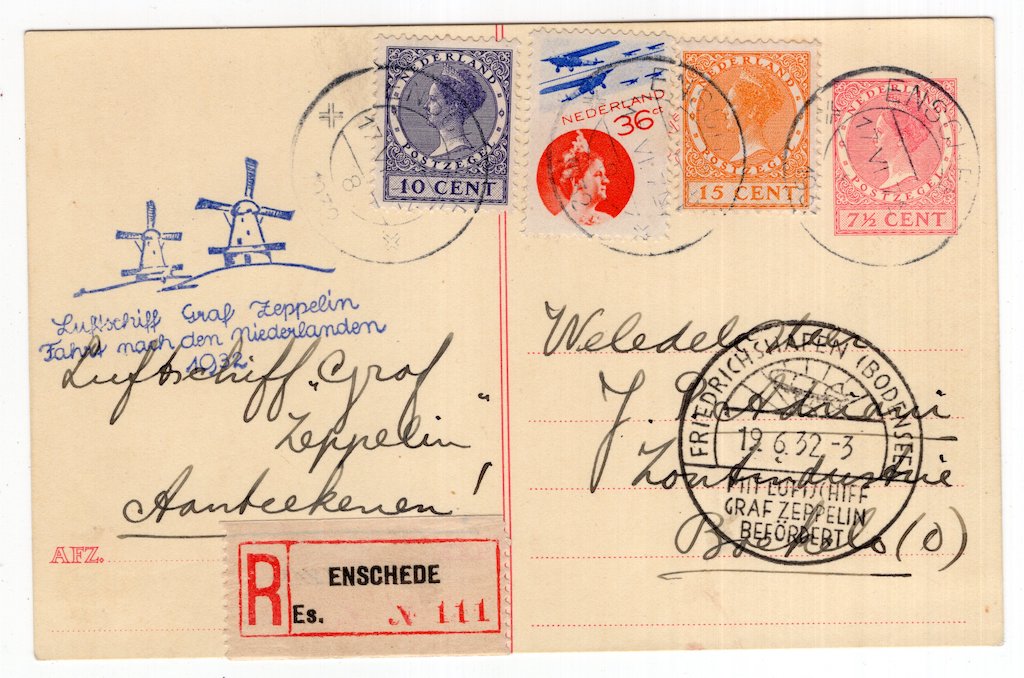 NEDERLAND
POSTZEGEL
10 CENT
NEDERLAND
36 ct
NEDERLAND
POSTZEGEL
15 CENT
NEDERLAND
POSTZEGEL
7½ CENT
ENSCHEDE
17 VI
Luftschiff Graf Zeppelin
Fahrt nach den Niederlanden
1932
Luftschiff "Graf
Zeppelin"
Aanteekenen!
AFZ.
R
ENSCHEDE
Es. № 111
J.
Zoutindustrie
Boekelo (O)
FRIEDRICHSHAFEN (BODENSEE)
19.6.32.-3
MIT LUFTSCHIFF
GRAF ZEPPELIN
BEFÖRDERT